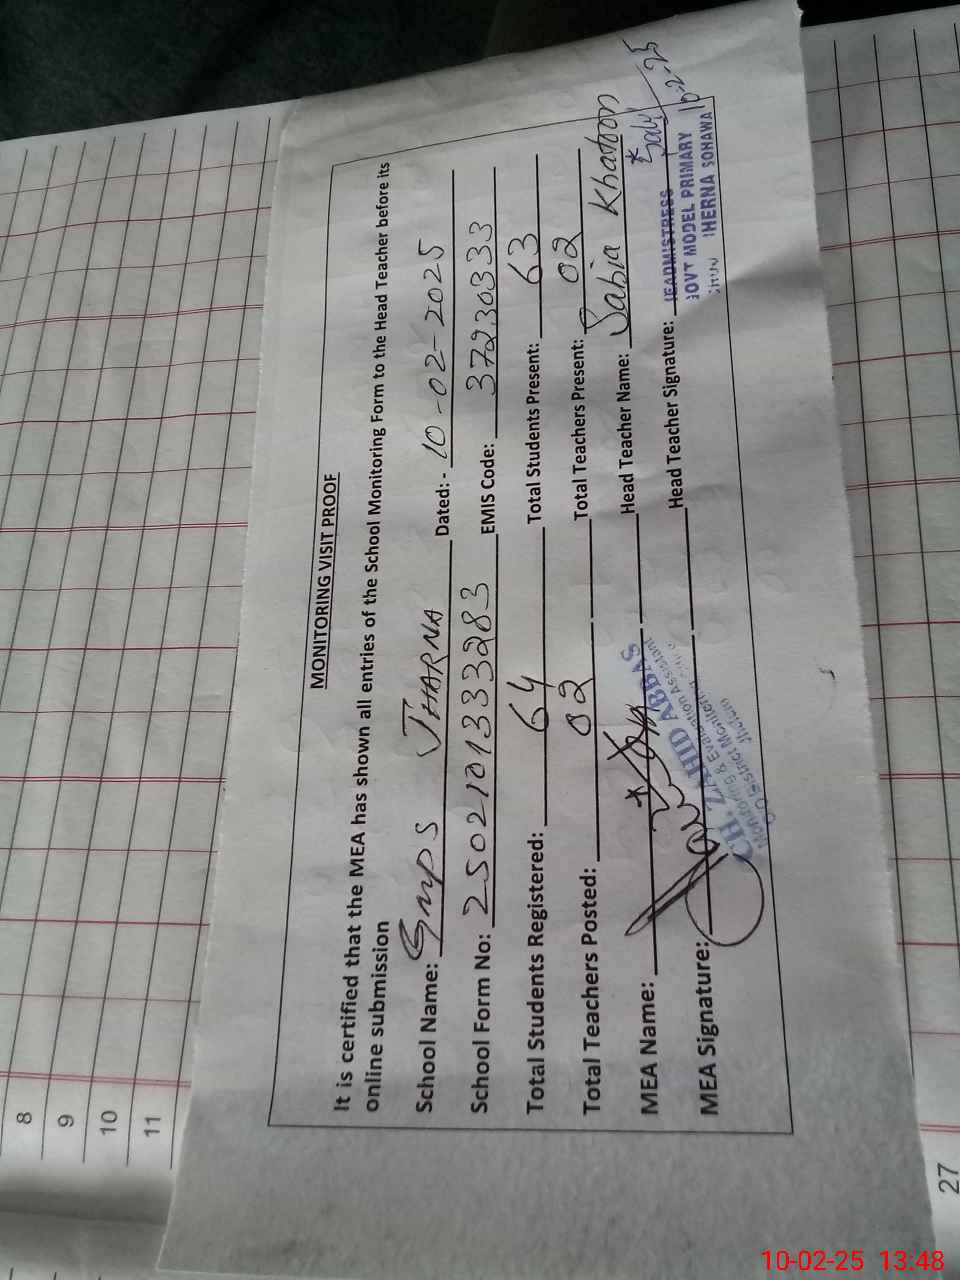 MONITORING VISIT PROOF
It is certified that the MEA has shown all entries of the School Monitoring Form to the Head Teacher before its
online submission
School Name: GMPS JHARNA Dated: - 10-02-2025
School Form No: 2502101333283 EMIS Code: 37230333
Total Students Registered: 64 Total Students Present: 63
Total Teachers Posted: 02 Total Teachers Present: 02
MEA Name: Head Teacher Name: Sabia Khatoon
MEA Signature: Head Teacher Signature:
CH. ZAHID ABBAS
Monitoring & Evaluation Assistant
O/O District Monitoring
Jhelum
10-2-25
HEADMISTRESS
GOVT MODEL PRIMARY
SOHAWA
8
9
10
11
27
10-02-25 13:48